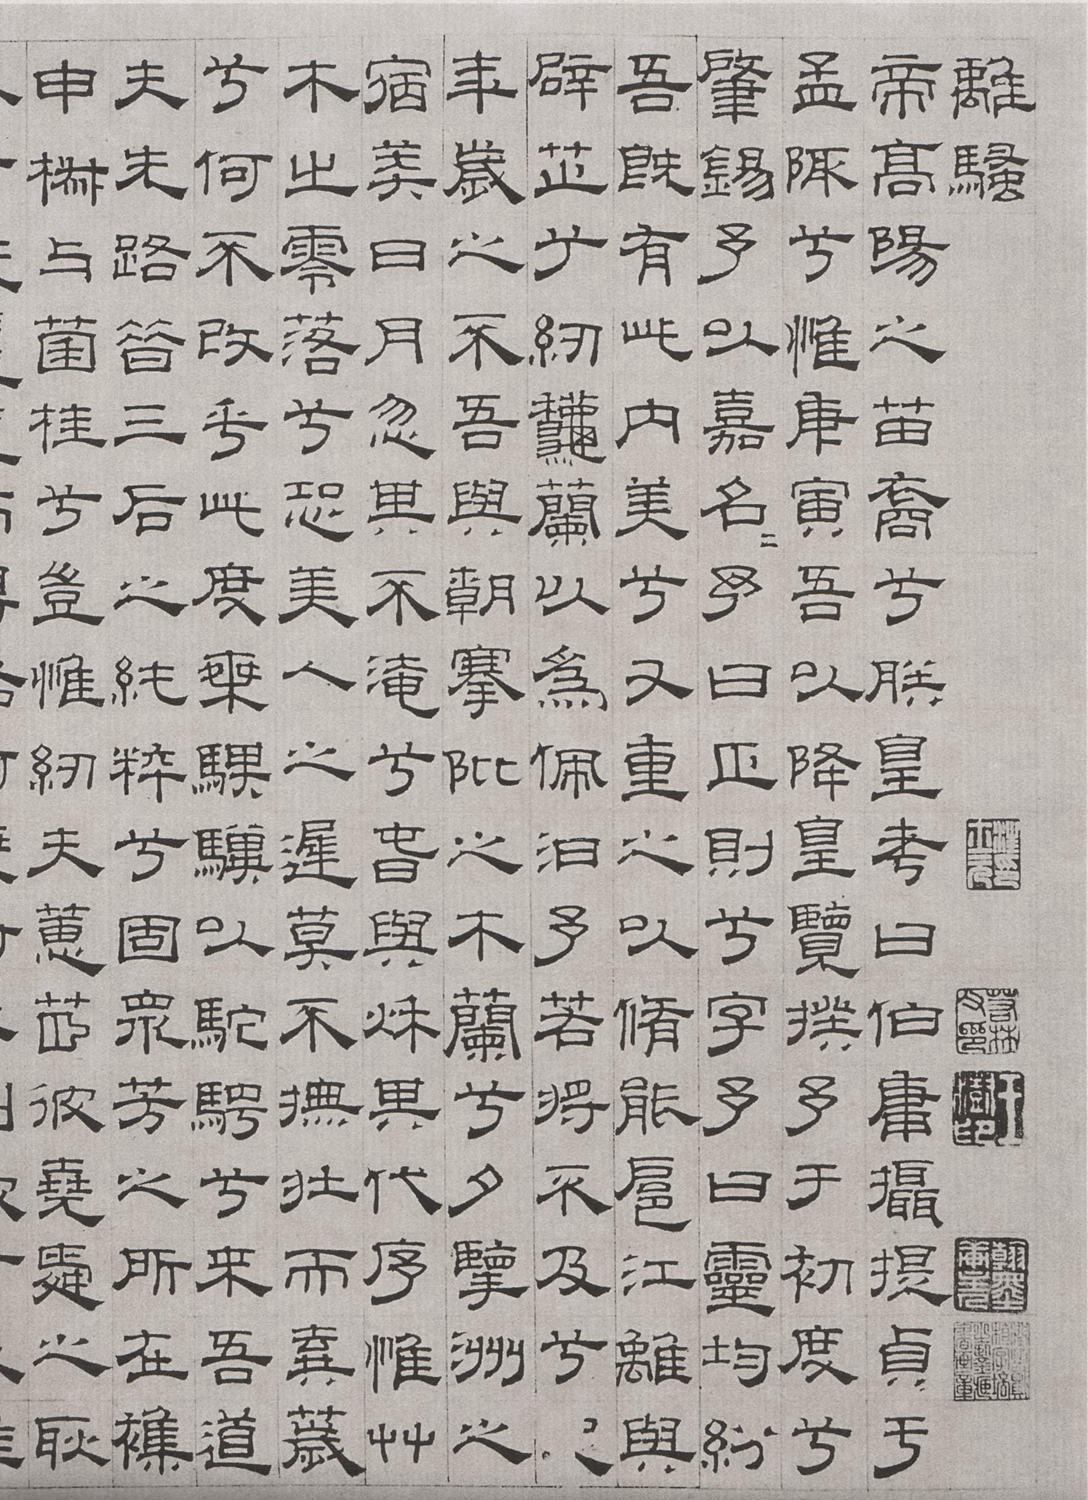 離騷
帝高陽之苗裔兮朕皇考曰伯庸攝提貞于
孟陬兮惟庚寅吾以降皇覽揆予于初度兮
肇錫予以嘉名〻予曰正則兮字予曰靈均紛
吾既有此內美兮又重之以脩能扈江離與
辟芷兮紉龝蘭以為佩汩予若將不及兮
年歲之不吾與朝搴阰之木蘭兮夕擥洲之
宿莽日月忽其不淹兮春與秌其代序惟艸
木之零落兮恐美人之遲莫不撫壯而棄薉
兮何不改乎此度乘騏驥以駝騁兮來吾道
夫先路昔三后之純粹兮固眾芳之所在襍
申椒与菌桂兮豈惟紉夫蕙茝彼堯舜之耿